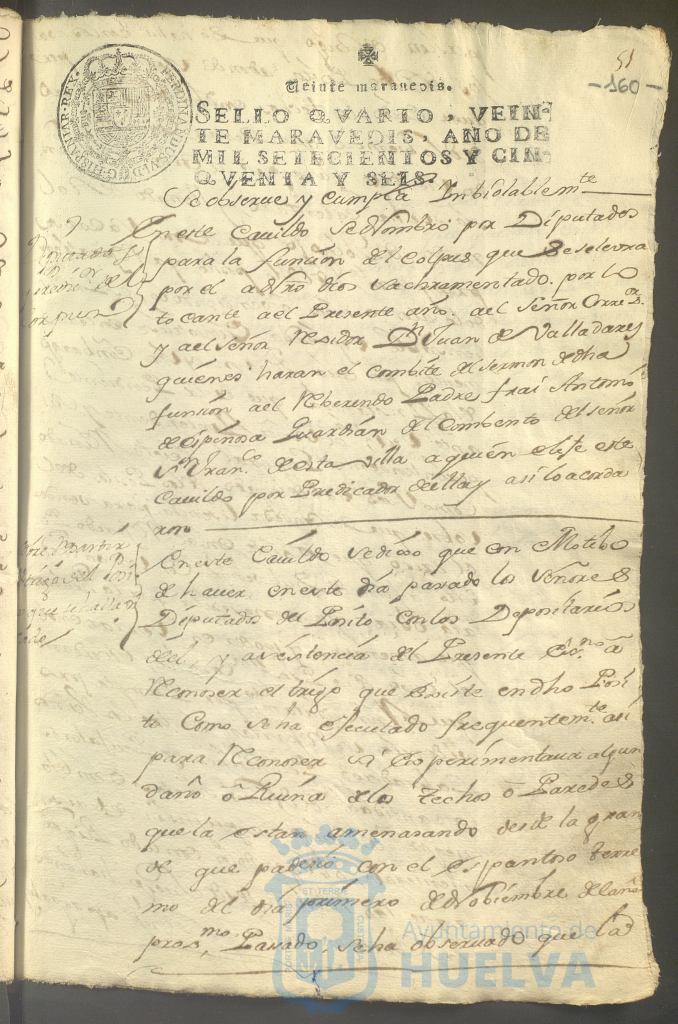 51
-160-
FERDINANDUS VI D G HISPANIAR REX
Veinte maravedis.
SELLO QVARTO, VEIN-
TE MARAVEDIS, AÑO DE
MIL SETECIENTOS Y CIN-
QVENTA Y SEIS.
Se observe y cumpla Inbiolablemte
En este Cavildo se Nombró por Diputados
para la función del Corpus que se selevra
por el a Ntro Dios Sachramentado. por lo
tocante a el Presente año. a el Señor Corregor
y a el Señor Residor Dn Juan de Valladares
quienes haran el combite del sermon de dha
función a el Reberendo Padre frai Antonio
de espinosa Guardián del Combento del Señor
Sn Franco de esta Villa a quien elije este
Cavildo por Predicador de ella y asi lo acorda
ron
En este Cavildo se dixo que con Motibo
de haver en este día pasado los Señores
Diputados del Posito con los Depositarios
del, y a sistencia del Presente Esno a
Reconoser el trigo que Existe en dho Posi
to Como se ha efecutado frequentemte asi
para Reconoser si Esperimentava algun
daño ó Ruina de los techos ó Paredes
que la estan amenasando desde la gran
de que padecio con el espantoso terre
mo del día primero de Nobiembre del año
proxmo Pasado se ha observado que la
Ayuntamiento de
HUELVA